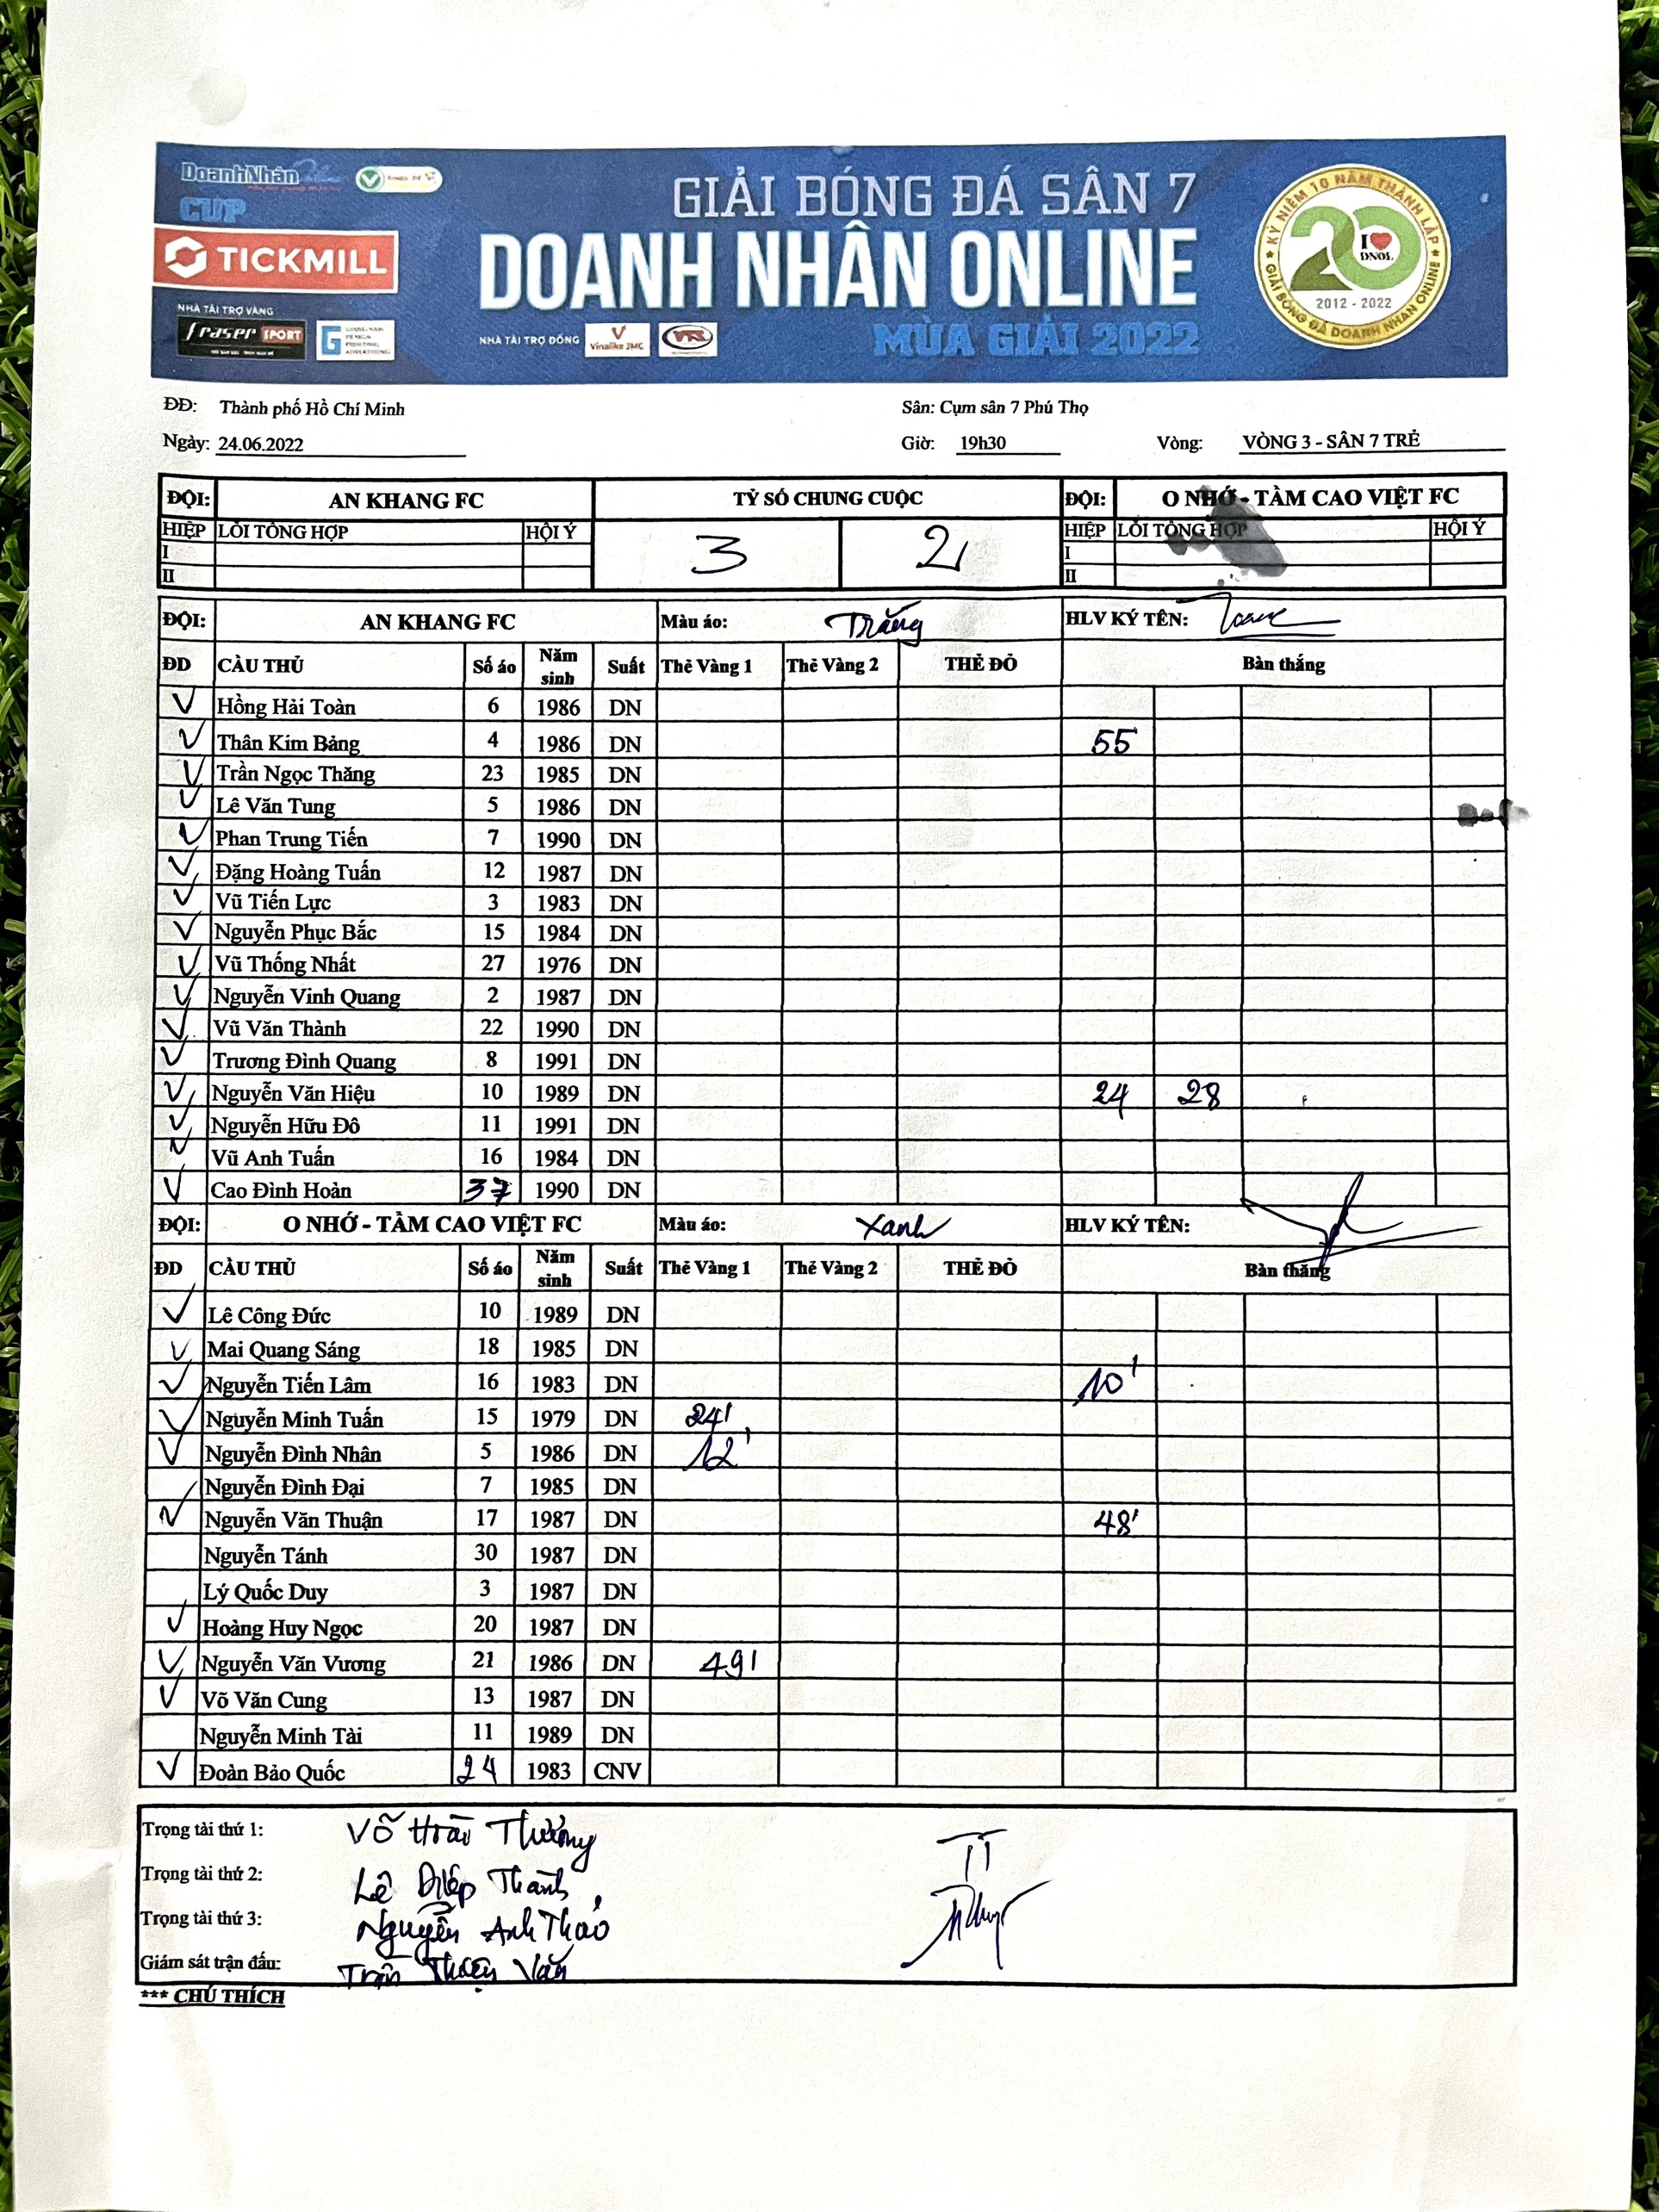 DoanhNhân
CUP
TICKMILL
NHÀ TÀI TRỢ VÀNG
fraser SPORT
GIẢI BÓNG ĐÁ SÂN 7
DOANH NHÂN ONLINE
NHÀ TÀI TRỢ ĐỒNG Vinalike JMC
MÙA GIẢI 2022
KỶ NIỆM 10 NĂM THÀNH LẬP
I DNOL
2012 - 2022
GIẢI BÓNG ĐÁ DOANH NHÂN ONLINE
ĐĐ: Thành phố Hồ Chí Minh Sân: Cụm sân 7 Phú Thọ
Ngày: 24.06.2022 Giờ: 19h30 Vòng: VÒNG 3 - SÂN 7 TRẺ
ĐỘI: AN KHANG FC TỶ SỐ CHUNG CUỘC ĐỘI: O NHỚ - TẦM CAO VIỆT FC
HIỆP LỖI TỔNG HỢP HỘI Ý 3 2 HIỆP LỖI TỔNG HỢP HỘI Ý
I I
II II
ĐỘI: AN KHANG FC Màu áo: Trắng HLV KÝ TÊN:
ĐD CẦU THỦ Số áo Năm sinh Suất Thẻ Vàng 1 Thẻ Vàng 2 THẺ ĐỎ Bàn thắng
Hồng Hải Toàn 6 1986 DN
Thân Kim Bảng 4 1986 DN 55
Trần Ngọc Thăng 23 1985 DN
Lê Văn Tung 5 1986 DN
Phan Trung Tiến 7 1990 DN
Đặng Hoàng Tuấn 12 1987 DN
Vũ Tiến Lực 3 1983 DN
Nguyễn Phục Bắc 15 1984 DN
Vũ Thống Nhất 27 1976 DN
Nguyễn Vinh Quang 2 1987 DN
Vũ Văn Thành 22 1990 DN
Trương Đình Quang 8 1991 DN
Nguyễn Văn Hiệu 10 1989 DN 24 28
Nguyễn Hữu Đô 11 1991 DN
Vũ Anh Tuấn 16 1984 DN
Cao Đình Hoàn 37 1990 DN
ĐỘI: O NHỚ - TẦM CAO VIỆT FC Màu áo: Xanh HLV KÝ TÊN:
ĐD CẦU THỦ Số áo Năm sinh Suất Thẻ Vàng 1 Thẻ Vàng 2 THẺ ĐỎ Bàn thắng
Lê Công Đức 10 1989 DN
Mai Quang Sáng 18 1985 DN
Nguyễn Tiến Lâm 16 1983 DN 10'
Nguyễn Minh Tuấn 15 1979 DN 24'
Nguyễn Đình Nhân 5 1986 DN 12'
Nguyễn Đình Đại 7 1985 DN
Nguyễn Văn Thuận 17 1987 DN 48'
Nguyễn Tánh 30 1987 DN
Lý Quốc Duy 3 1987 DN
Hoàng Huy Ngọc 20 1987 DN
Nguyễn Văn Vương 21 1986 DN 49'
Võ Văn Cung 13 1987 DN
Nguyễn Minh Tài 11 1989 DN
Đoàn Bảo Quốc 24 1983 CNV
Trọng tài thứ 1: Võ Hoài Thưởng
Trọng tài thứ 2: Lê Diệp Thành
Trọng tài thứ 3: Nguyễn Anh Thảo
Giám sát trận đấu: Trần Thiện Văn
*** CHÚ THÍCH